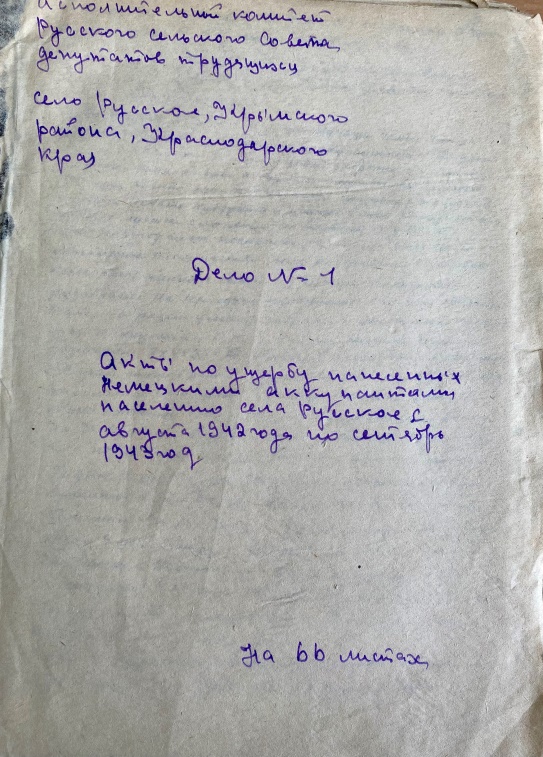 Исполнительный комитет
Русского сельского Совета
депутатов трудящихся
село Русское, Крымского
района, Краснодарского
края
Дело № 1
Акты по ущербу нанесенных
немецкими аккупантами
населению села Русское с
августа 1942 года по сентябрь
1943 год
На 66 листах